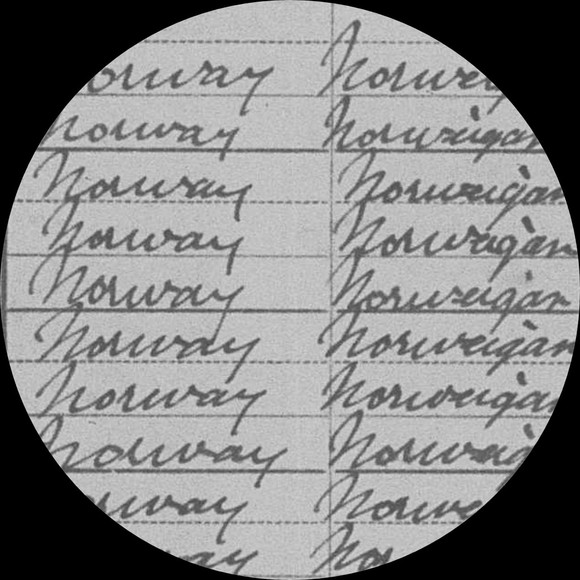 Norway Norweig
Norway Norweigan
Norway Norweigan
Norway Norweigan
Norway Norweigan
Norway Norweigan
Norway Norweigan
Norway Norweig
Norway Norwe
way Nor